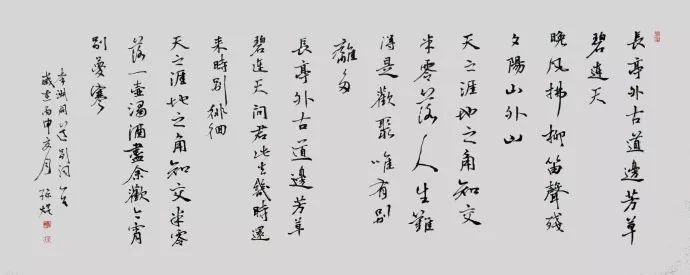 長亭外古道邊芳草
碧連天
晚风拂柳笛聲殘
夕陽山外山
天之涯地之角知交
半零落人生難
得是歡聚唯有別
離多
長亭外古道邊芳草
碧連天問君此去幾時還
来時别徘徊
天之涯地之角知交半零
落一壺濁酒盡余歡今宵
别夢寒
李淑同送别词
歲在丙申亥月